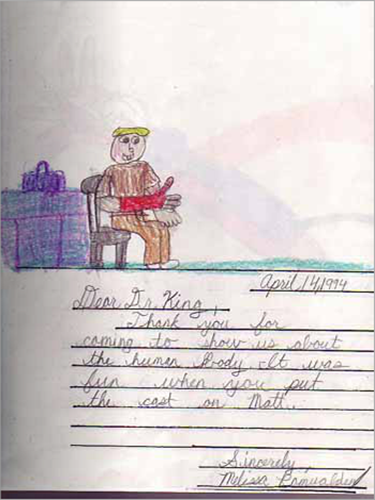 April 14, 1994
Dear Dr. King,
Thank you for
coming to show us about
the human Body. It was
fun when you put
the cast on Matt.
Sincerely,
Melissa